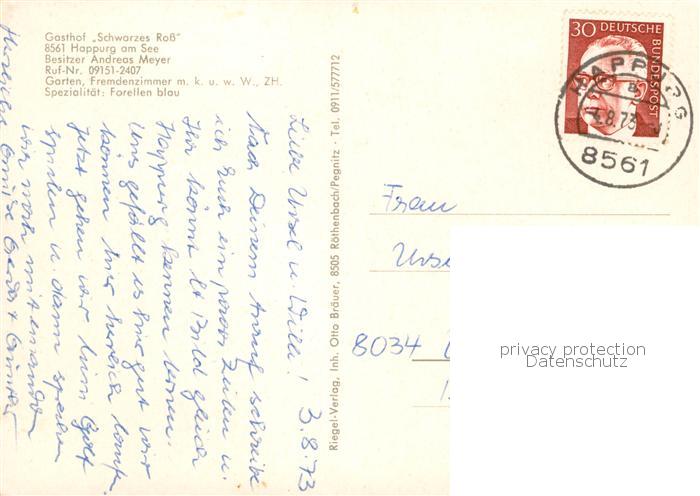 Gasthof „Schwarzes Roß"
8561 Happurg am See
Besitzer Andreas Meyer
Ruf-Nr. 09151-2407
Garten, Fremdenzimmer m. k. u. w. W., ZH.
Spezialität: Forellen blau
Liebe Ursel u. Willi! 3.8.73
Nach Deinem Anruf schreibe
ich Euch ein paar Zeilen u.
Ihr könnt lt Bild gleich
Happurg kennen lernen.
Uns gefällt es hier gut wir
können hier herrlich laufen.
Jetzt gehen wir zum Golf
spielen u. dann sprechen
wir noch miteinander
Herzliche Grüße Gerda + Günther
Riegel-Verlag, Inh. Otto Bräuer, 8505 Röthenbach/Pegnitz · Tel. 0911/577712
30 DEUTSCHE BUNDESPOST
HAPPURG
a
8.73
8561
Frau
8034
privacy protection
Datenschutz